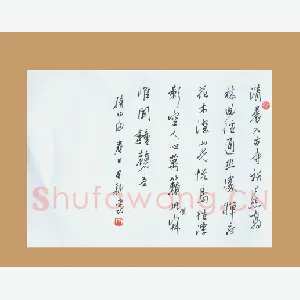 清晨入古寺初日照高
林曲径通幽处禅房
花木深山光悦鸟性潭
影空人心万籁此俱寂
惟闻钟磬音
Shufawang.CN